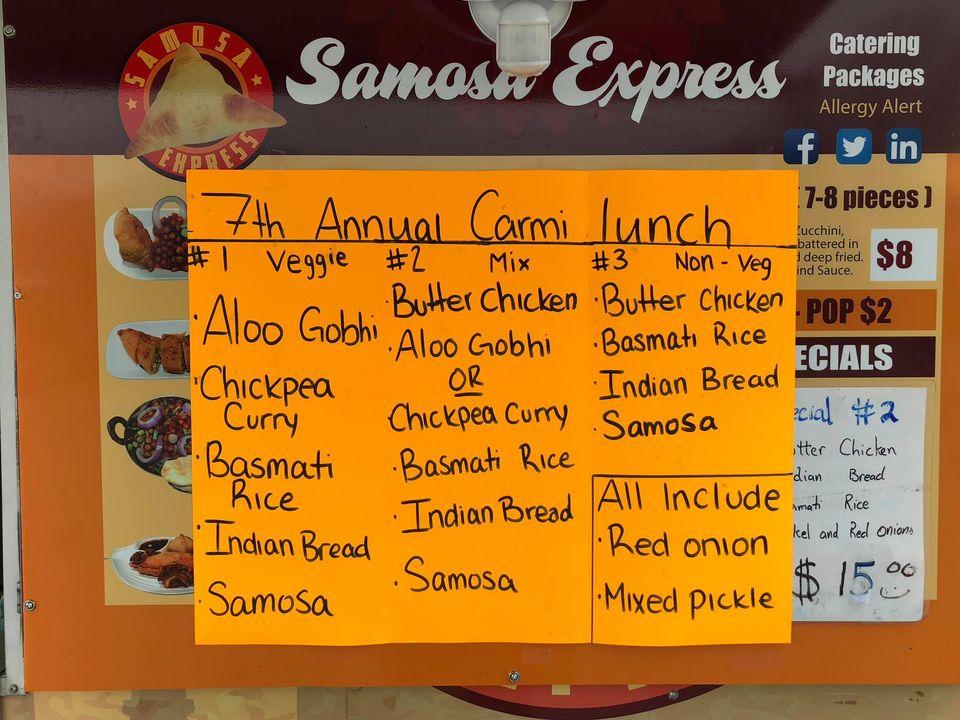 SAMOSA
EXPRESS
Samosa Express
Catering
Packages
Allergy Alert
7th Annual Carmi lunch
#1 Veggie
· Aloo Gobhi
· Chickpea
Curry
· Basmati
Rice
· Indian Bread
· Samosa
#2 Mix
· Butter Chicken
· Aloo Gobhi
OR
· Chickpea Curry
· Basmati Rice
· Indian Bread
· Samosa
#3 Non-Veg
· Butter Chicken
· Basmati Rice
· Indian Bread
· Samosa
All Include
· Red onion
· Mixed Pickle
7-8 pieces )
Zucchini,
battered in
deep fried.
Sauce.
$8
POP $2
#2
Chicken
Bread
Rice
and Red Onions
$15.00